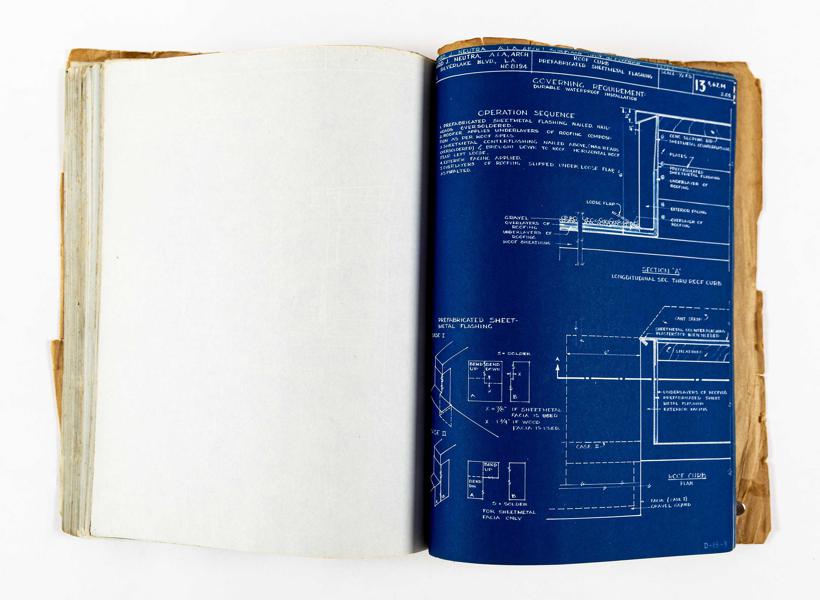 NEUTRA, A.I.A. ARCH
SILVERLAKE BLVD., L.A.
NO 8194
ROOF CURB
PREFABRICATED SHEETMETAL FLASHING
13
GOVERNING REQUIREMENT:
DURABLE WATERPROOF INSTALLATION
OPERATION SEQUENCE
PREFABRICATED SHEETMETAL FLASHING NAILED, NAIL-
HEADS OVERSOLDERED.
ROOFER APPLIES UNDERLAYERS OF ROOFING COMPOSI-
TION AS PER ROOF SPECS.
SHEETMETAL COUNTERFLASHING NAILED ABOVE, (NAILHEADS
OVERSOLDERED) & BROUGHT DOWN TO ROOF. HORIZONTAL ROOF
FLAP LEFT LOOSE.
EXTERIOR FACING APPLIED.
OVERLAYERS OF ROOFING SLIPPED UNDER LOOSE FLAP &
ASPHALTED.
PLATES
PREFABRICATED
SHEETMETAL FLASHING
UNDERLAYER OF
ROOFING
EXTERIOR FACING
OVERLAYER OF
ROOFING
LOOSE FLAP
GRAVEL
OVERLAYERS OF
ROOFING
UNDERLAYERS OF
ROOFING
ROOF SHEATHING
SECTION "A"
LONGITUDINAL SEC. THRU ROOF CURB
PREFABRICATED SHEET-
METAL FLASHING
CASE I
S = SOLDER
BEND UP
BEND DOWN
S
X
A
B
X = 3/8" IF SHEETMETAL
FACIA IS USED
X = 1 3/4" IF WOOD
FACIA IS USED.
CASE II
BEND UP
BEND DN
A
B
S = SOLDER
FOR SHEETMETAL
FACIA ONLY
CANT STRIP
SHEETMETAL COUNTERFLASHING
SHEATHING
A
6"
UNDERLAYERS OF ROOFING
PREFABRICATED SHEET
METAL FLASHING
EXTERIOR FACING
CASE II
ROOF CURB
PLAN
FACIA (CASE I)
GRAVEL GUARD